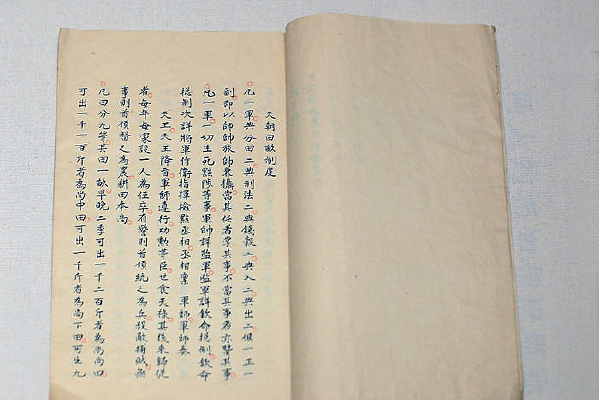 天朝田畝制度
凡一軍典分田二典刑法二典錢穀二典入二典出二俱一正一
副即以師帥旅帥兼攝當其任者掌其事不當其事者亦贊其事
凡一軍一切生死黜陟等事軍帥詳監軍監軍詳欽命總制欽命
總制次詳將軍侍衛指揮檢點丞相丞相稟 軍師軍師奏
天王天王降旨軍師遵行功勳等臣世食天祿其後來歸從
者每年每家設一人為伍卒有警則首領統之為兵殺敵捕賊無
事則首領督之為農耕田奉尚
凡田分九等其田一畝早晚二季可出一千二百斤者為尚尚田
可出一千一百斤者為尚中田可出一千斤者為尚下田可出九